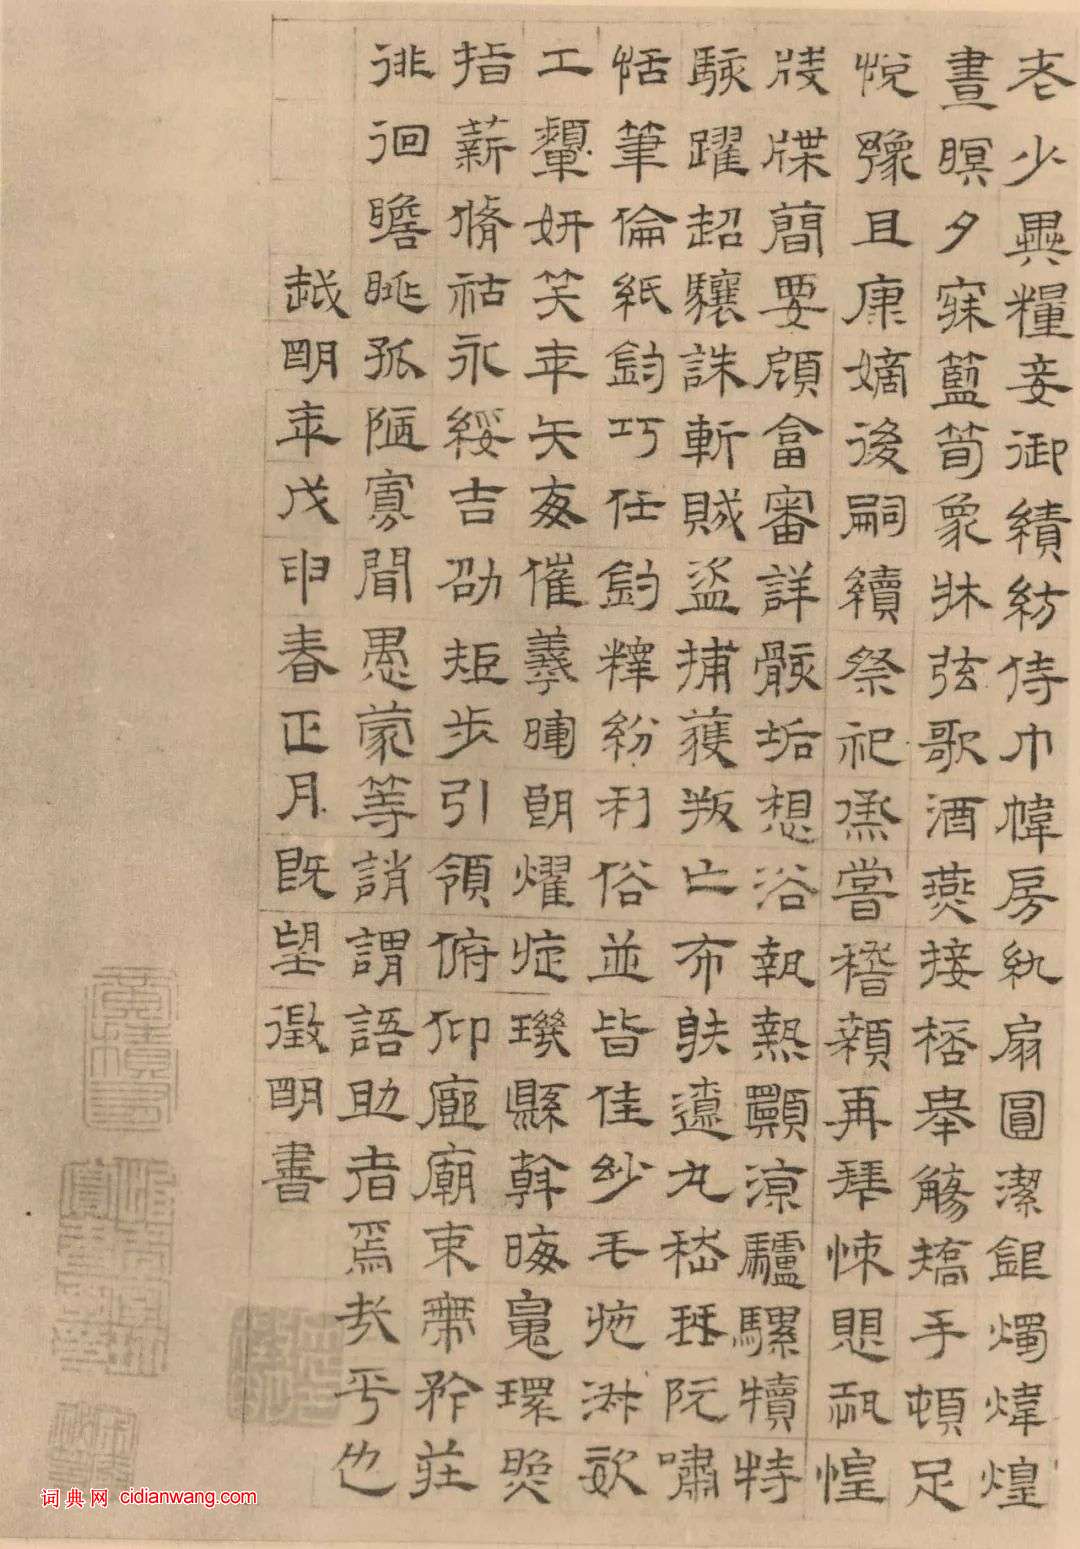 老少異糧妾御績紡侍巾幃房紈扇圓潔銀燭煒煌
晝瞑夕寐籃筍象牀弦歌酒燕接桮舉觴矯手頓足
悅豫且康嫡後嗣續祭祀烝嘗稽顙再拜悚愳恐惶
牋牒簡要顧畣審詳骸垢想浴執熱願涼驢騾犢特
駭躍超驤誅斬賊盜捕獲叛亡布射遼丸嵇琴阮嘯
恬筆倫紙鈞巧任釣釋紛利俗並皆佳妙毛施淑姿
工顰妍笑年矢每催羲暉朗燿璇璣縣斡晦魄環照
指薪脩祜永綏吉劭矩步引領俯仰廊廟束帶矜莊
徘徊瞻眺孤陋寡聞愚蒙等誚謂語助者焉哉乎也
越明年戊申春正月既望徵明書
词典网 cidianwang.com